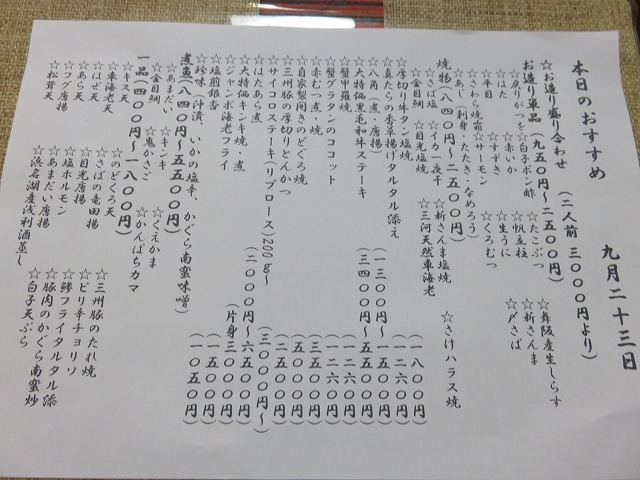 本日のおすすめ　九月二十三日
☆お造り盛り合わせ（二人前　三〇〇〇円より）
お造り単品（九五〇円～二五〇〇円）
☆戻りがつを　☆白子ポン酢　☆たこぶつ　☆舞阪産生しらす
☆はた　☆赤いか　☆帆立柱　☆新さんま
☆平目　☆すずき　☆生うに　☆〆さば
☆さわら焼霜　☆サーモン　☆くろむつ
☆あじ（刺身・たたき・なめろう）
焼物（八四〇円～二五〇〇円）
☆さば塩　☆イカ一夜干　☆新さんま塩焼　☆さけハラス焼
☆金目鯛　☆目光塩焼　☆三河天然車海老
☆厚切り牛タン塩焼（一八〇〇円）
☆真たらの香草揚げタルタル添え（一二六〇円）
☆八角（煮・唐揚）（一三〇〇円～一五〇〇円）
☆大特価黒毛和牛ステーキ（三四〇〇円～五五〇〇円）
☆蟹甲羅焼（一二六〇円）
☆蟹グラタンのココット（一二六〇円）
☆赤むつ煮・焼（三五〇〇円）
☆自家製開きのどぐろ焼（二五〇〇円）
☆三州豚の厚切りとんかつ（一五〇〇円）
☆サイコロステーキ（リブロース）200ｇ～（三〇〇〇円～）
☆はたあら煮（一五〇〇円）
☆大特価キンキ焼・煮（二〇〇〇円～六五〇〇円）
☆ジャンボ海老フライ（片身三〇〇〇円）
☆塩煎銀杏（一五〇円）
☆珍味（汁漬、いかの塩辛、かぐら南蛮味噌）（一〇五〇円）
煮魚（八四〇円～五五〇〇円）
☆あまだい　☆キンキ　☆くえかま
☆金目鯛　☆鬼かさご　☆かんぱちカマ
一品（四〇〇円～一八〇〇円）
☆キス天　☆のどぐろ天　☆三州豚のたれ焼
☆車海老天　☆さばの竜田揚　☆ピリ辛チョリソ
☆はぜ天　☆目光唐揚　☆鯵フライタルタル添
☆あら天　☆塩ホルモン　☆豚肉のかぐら南蛮炒
☆フグ唐揚　☆あまだい唐揚　☆白子天ぷら
☆松茸天　☆浜名湖産浅利酒蒸し